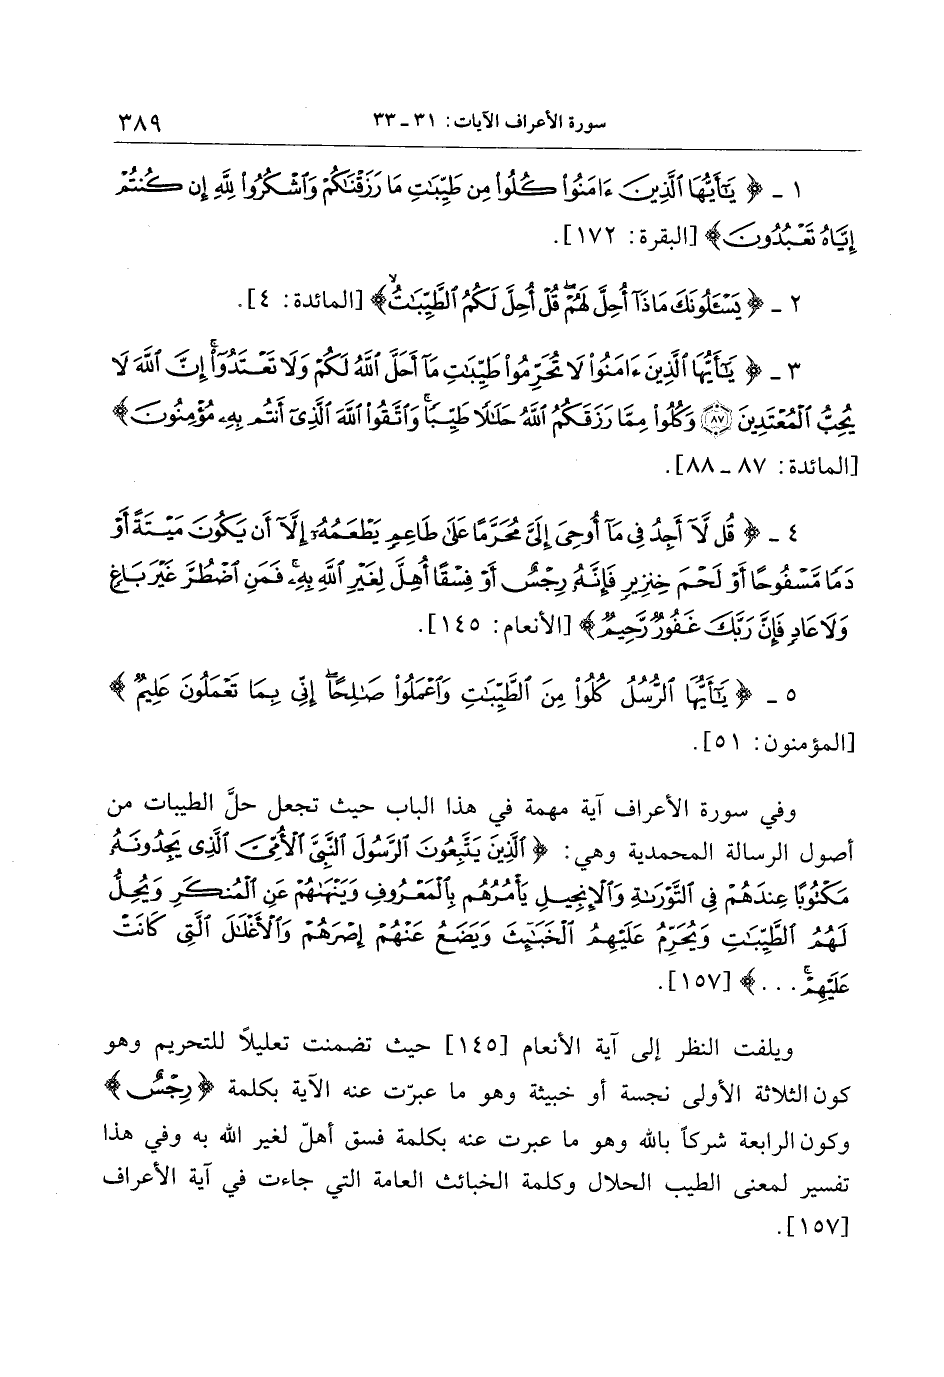 سورة الأعراف الآيات: ٣١ ـ ٣٣ ٣٨٩
١ ـ ﴿ يَٰٓأَيُّهَا ٱلَّذِينَ ءَامَنُوا۟ كُلُوا۟ مِن طَيِّبَٰتِ مَا رَزَقْنَٰكُمْ وَٱشْكُرُوا۟ لِلَّهِ إِن كُنتُمْ
إِيَّاهُ تَعْبُدُونَ﴾ [البقرة: ١٧٢].
٢ ـ ﴿ يَسْـَٔلُونَكَ مَاذَآ أُحِلَّ لَهُمْ ۖ قُلْ أُحِلَّ لَكُمُ ٱلطَّيِّبَٰتُ ۙ﴾ [المائدة: ٤].
٣ ـ ﴿ يَٰٓأَيُّهَا ٱلَّذِينَ ءَامَنُوا۟ لَا تُحَرِّمُوا۟ طَيِّبَٰتِ مَآ أَحَلَّ ٱللَّهُ لَكُمْ وَلَا تَعْتَدُوٓا۟ ۚ إِنَّ ٱللَّهَ لَا
يُحِبُّ ٱلْمُعْتَدِينَ ٨٧ وَكُلُوا۟ مِمَّا رَزَقَكُمُ ٱللَّهُ حَلَٰلًا طَيِّبًا ۚ وَٱتَّقُوا۟ ٱللَّهَ ٱلَّذِىٓ أَنتُم بِهِۦ مُؤْمِنُونَ﴾
[المائدة: ٨٧ ـ ٨٨].
٤ ـ ﴿ قُل لَّآ أَجِدُ فِى مَآ أُوحِىَ إِلَىَّ مُحَرَّمًا عَلَىٰ طَاعِمٍ يَطْعَمُهُۥٓ إِلَّآ أَن يَكُونَ مَيْتَةً أَوْ
دَمًا مَّسْفُوحًا أَوْ لَحْمَ خِنزِيرٍ فَإِنَّهُۥ رِجْسٌ أَوْ فِسْقًا أُهِلَّ لِغَيْرِ ٱللَّهِ بِهِۦ ۚ فَمَنِ ٱضْطُرَّ غَيْرَ بَاغٍ
وَلَا عَادٍ فَإِنَّ رَبَّكَ غَفُورٌ رَّحِيمٌ﴾ [الأنعام: ١٤٥].
٥ ـ ﴿ يَٰٓأَيُّهَا ٱلرُّسُلُ كُلُوا۟ مِنَ ٱلطَّيِّبَٰتِ وَٱعْمَلُوا۟ صَٰلِحًا ۖ إِنِّى بِمَا تَعْمَلُونَ عَلِيمٌ ﴾
[المؤمنون: ٥١].
وفي سورة الأعراف آية مهمة في هذا الباب حيث تجعل حلَّ الطيبات من
أصول الرسالة المحمدية وهي: ﴿ ٱلَّذِينَ يَتَّبِعُونَ ٱلرَّسُولَ ٱلنَّبِىَّ ٱلْأُمِّىَّ ٱلَّذِى يَجِدُونَهُۥ
مَكْتُوبًا عِندَهُمْ فِى ٱلتَّوْرَىٰةِ وَٱلْإِنجِيلِ يَأْمُرُهُم بِٱلْمَعْرُوفِ وَيَنْهَىٰهُمْ عَنِ ٱلْمُنكَرِ وَيُحِلُّ
لَهُمُ ٱلطَّيِّبَٰتِ وَيُحَرِّمُ عَلَيْهِمُ ٱلْخَبَٰٓئِثَ وَيَضَعُ عَنْهُمْ إِصْرَهُمْ وَٱلْأَغْلَٰلَ ٱلَّتِى كَانَتْ
عَلَيْهِمْ ۚ...﴾ [١٥٧].
ويلفت النظر إلى آية الأنعام [١٤٥] حيث تضمنت تعليلاً للتحريم وهو
كون الثلاثة الأولى نجسة أو خبيثة وهو ما عبرّت عنه الآية بكلمة ﴿رِجْسٌ﴾
وكون الرابعة شركاً بالله وهو ما عبرت عنه بكلمة فسق أهلّ لغير الله به وفي هذا
تفسير لمعنى الطيب الحلال وكلمة الخبائث العامة التي جاءت في آية الأعراف
[١٥٧].